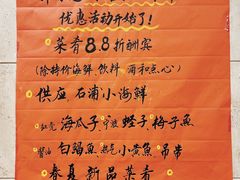 优惠活动开始了!
菜肴8.8折酬宾
(除特价海鲜、饮料、酒和点心)
供应 石浦小海鲜
海瓜子 蛏子 梅子鱼
白鲳鱼 小黄鱼 吊带
春夏新品菜肴